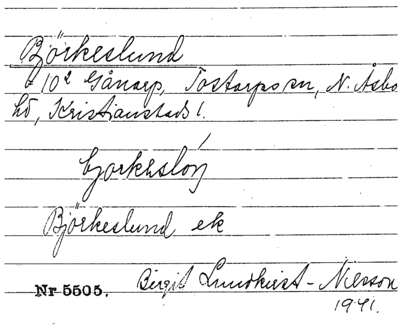 Björkeslund
10² Gånarp, Tostarps sn, N. Åsbo
hd, Kristianstads l.
Björkeslund ek
Nr 5505. Birgit Lundkvist-Nilsson
1941.